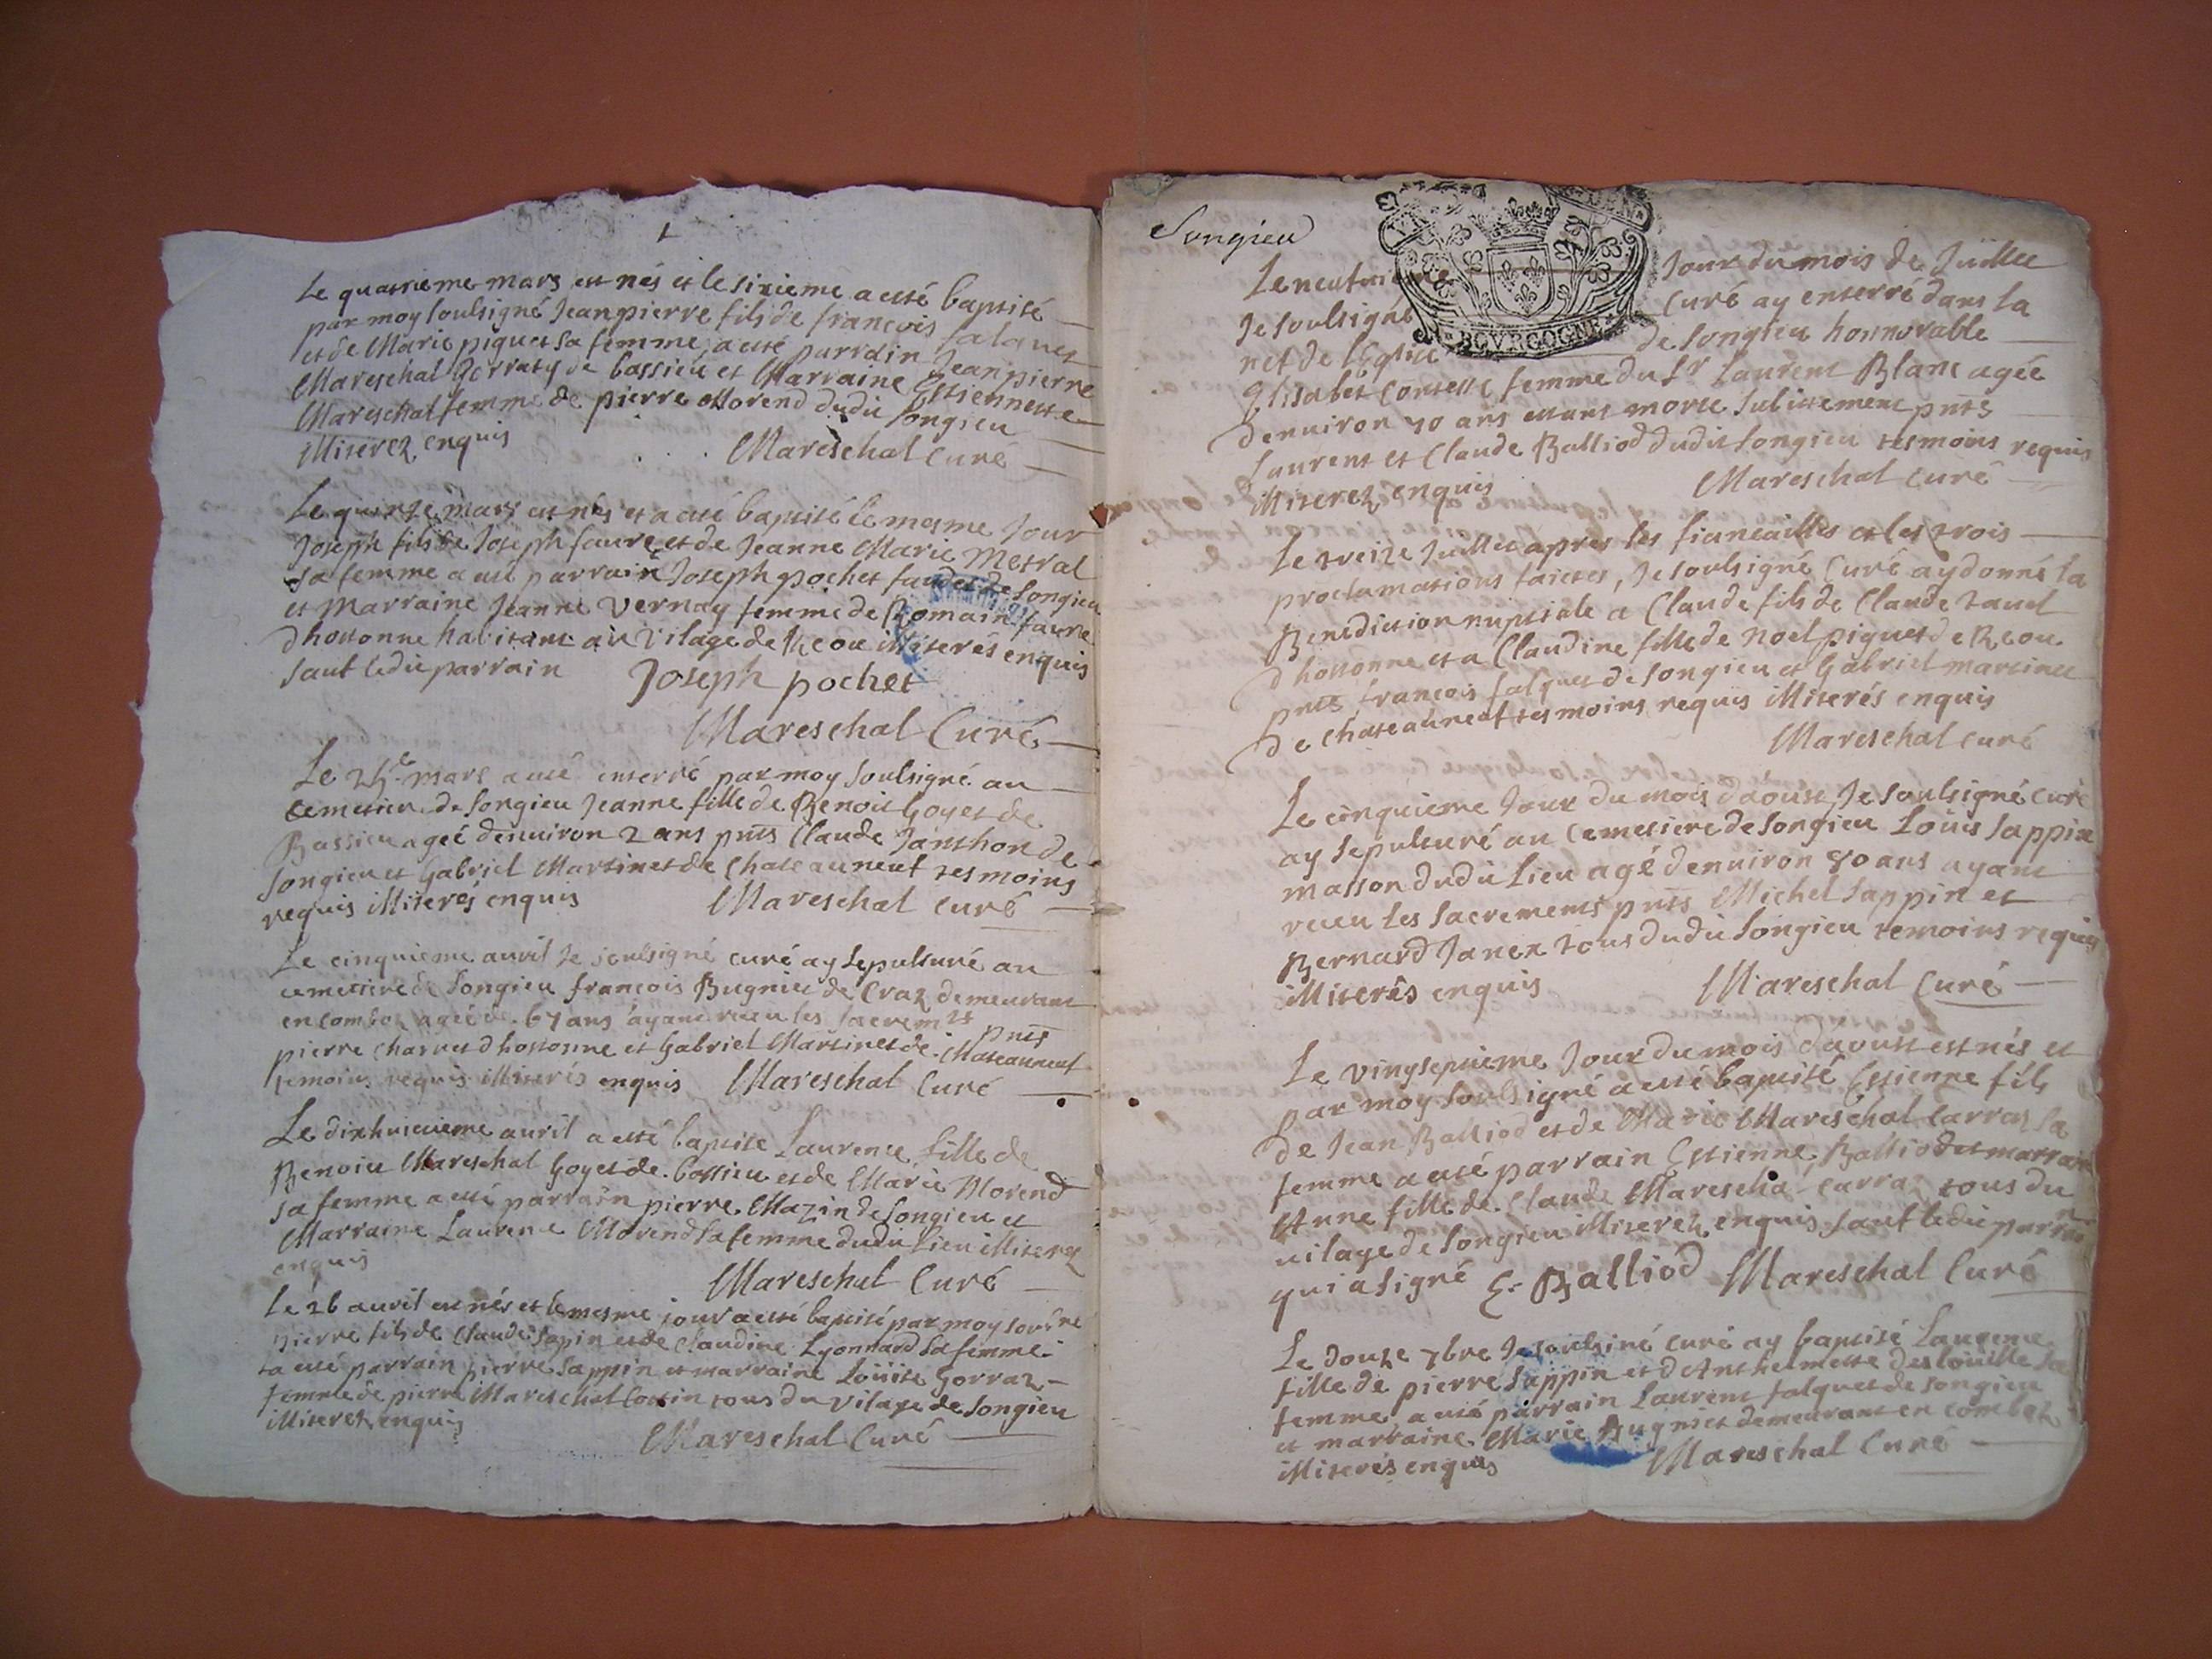 1
Le quatrieme mars est nés et le sixieme a esté baptisé
par moy soulsigné Jeanpierre fils de françois falquet
et de Marie piquet sa femme, a esté parrdin Jeanpierre
Mareschal Gorraty de bassieu et Marraine Estiennette
Mareschal femme de pierre Morend dudit songieu
illiterez enquis
Mareschal Curé
Le quinze mars est nés et a esté baptisé le mesme Jour
Joseph fils de Joseph faure et de Jeanne Marie Metral
sa femme a esté parrain Joseph pochet de Songieu
et Marraine Jeanne Vernay femme de Romain faure
dhostonne habitant au Vilage de Reou illiterés enquis
sauf ledit parrain
Joseph pochet
Mareschal Curé
Le mars a esté enterré par moy soulsigné au
cemetiere de songieu Jeanne fille de Benoit Goyet de
Bassieu ageé denuiron 2 ans pnts Claude Janthon de
songieu et Gabriel Martinet de Chateauneuf tesmoins
requis illiterés enquis
Mareschal curé
Le cinquieme auril Je soulsigné curé ay sepulturé au
cemetiere de songieu françois Bugniet de Craz demeurant
en combaz ageé de 67 ans ayant receu les sacremts
pnts
pierre Charuet dhostonne et Gabriel Martinet de Chateauneuf
temoins requis illiterés enquis Mareschal Curé
Le dixhuictieme auril a esté baptise Laurence fille de
Benoict Mareschal Goyet de bassieu et de Marie Morend
sa femme a esté parrain pierre Mazin de songieu et
Marraine Laurence Morend sa femme dudit Lieu illiterez
enquis
Mareschal Curé
Le 26 auril est nés et le mesme jour a esté baptisé par moy
pierre fils de Claude sapin et de Claudine Lyonnard sa femme
a esté parrain pierre sappin et marraine Loüise Gorraz
femme de pierre Mareschal Cottin tous du Vilage de songieu
illiterez enquis
Mareschal Curé
Songieu
BOVRGOGNE
Le neufuieme Jour du mois de Juillet
Je soulsigné Curé ay enterré dans la
nef de l'Eglise de songieu honnorable
Elisabet femme du Sr Laurent Blanc agée
denuiron 70 ans estant morte subittement pnts
Laurent et Claude Balliod dudit songieu tesmoins requis
illiterez enquis
Mareschal curé
Le treize Juillet apres les fiancailles et les trois
proclamations faictes, Je soulsigné Curé ay donné la
Benediction nuptiale a Claude fils de Claude
dhostonne et a Claudine fille de noel piquet de Reou
pnts françois falquet de songieu et Gabriel martinet
de chateauneuf tesmoins requis illiterés enquis
Mareschal curé
Le cinquieme Jour du mois d'aoust Je soulsigné Curé
ay sepulturé au Cemetiere de songieu Loüis sappin
masson dudit Lieu agé denuiron 80 ans ayant
receu les sacrements pnts Michel sappin et
Bernard Janex tous dudit songieu temoins requis
illiterés enquis
Mareschal Curé
Le vingsepuieme Jour du mois daoust est nés et
par moy soulsigné a esté baptisé Estienne fils
de Jean Balliod et de Marie Mareschal Carraz sa
femme a esté parrain Estienne Balliod et marraine
Anne fille de Claude Mareschal Carraz tous du
uilage de songieu illiterez enquis sauf ledit parrain
qui a signé E. Balliod Mareschal Curé
Le douze 7bre Je soulsiné curé ay baptisé Laurence
fille de pierre sappin et d Anthelmette sa
femme a esté parrain Laurent falquet de songieu
et marraine Marie Bugniet demeurant en combaz
illiterés enquis
Mareschal Curé